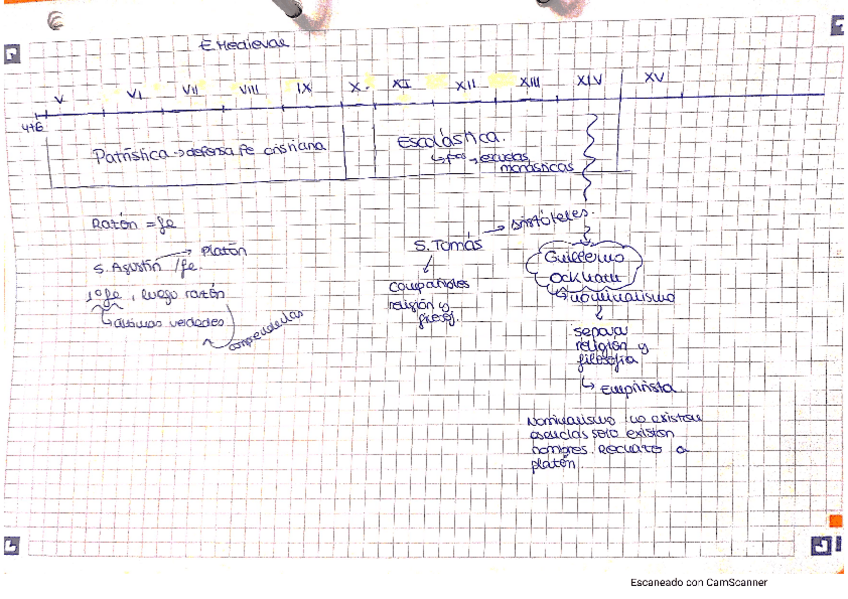 E Medieval
V VI VII VIII IX X XI XII XIII XIV XV
476
Patrística → defensa fe cristiana
Escolástica.
↳ escuelas
monásticas
Razón = fe
S. Agustín → Platón
/fe.
1º fe, luego razón
↳ últimas verdades
comprenderlas
S. Tomás → Aristóteles.
compatibles
religión y
filosof.
Guillermo
Ockham
↳ nominalismo
separa
religión y
filosofía
↳ Empirista
Nominalismo no existen
esencias solo existen
nombres. Rechazo a
platón
Escaneado con CamScanner